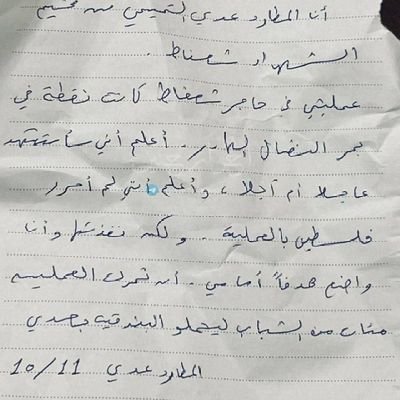 أنا المطارد عدي التميمي من مخيم
الشهداء شعفاط .
عمليتي في حاجز شعفاط كانت نقطة في
بحر النضال الهادر. أعلم أني سأستشهد
عاجلا أم آجلا ، وأعلم أنني لم أحرر
فلسطين بالعملية . ولكن نفذتها وأنا
واضع هدفاً أمامي . أن تحرك العملية
مئات من الشباب ليحملو البندقية بعدي
المطارد عدي 11/10